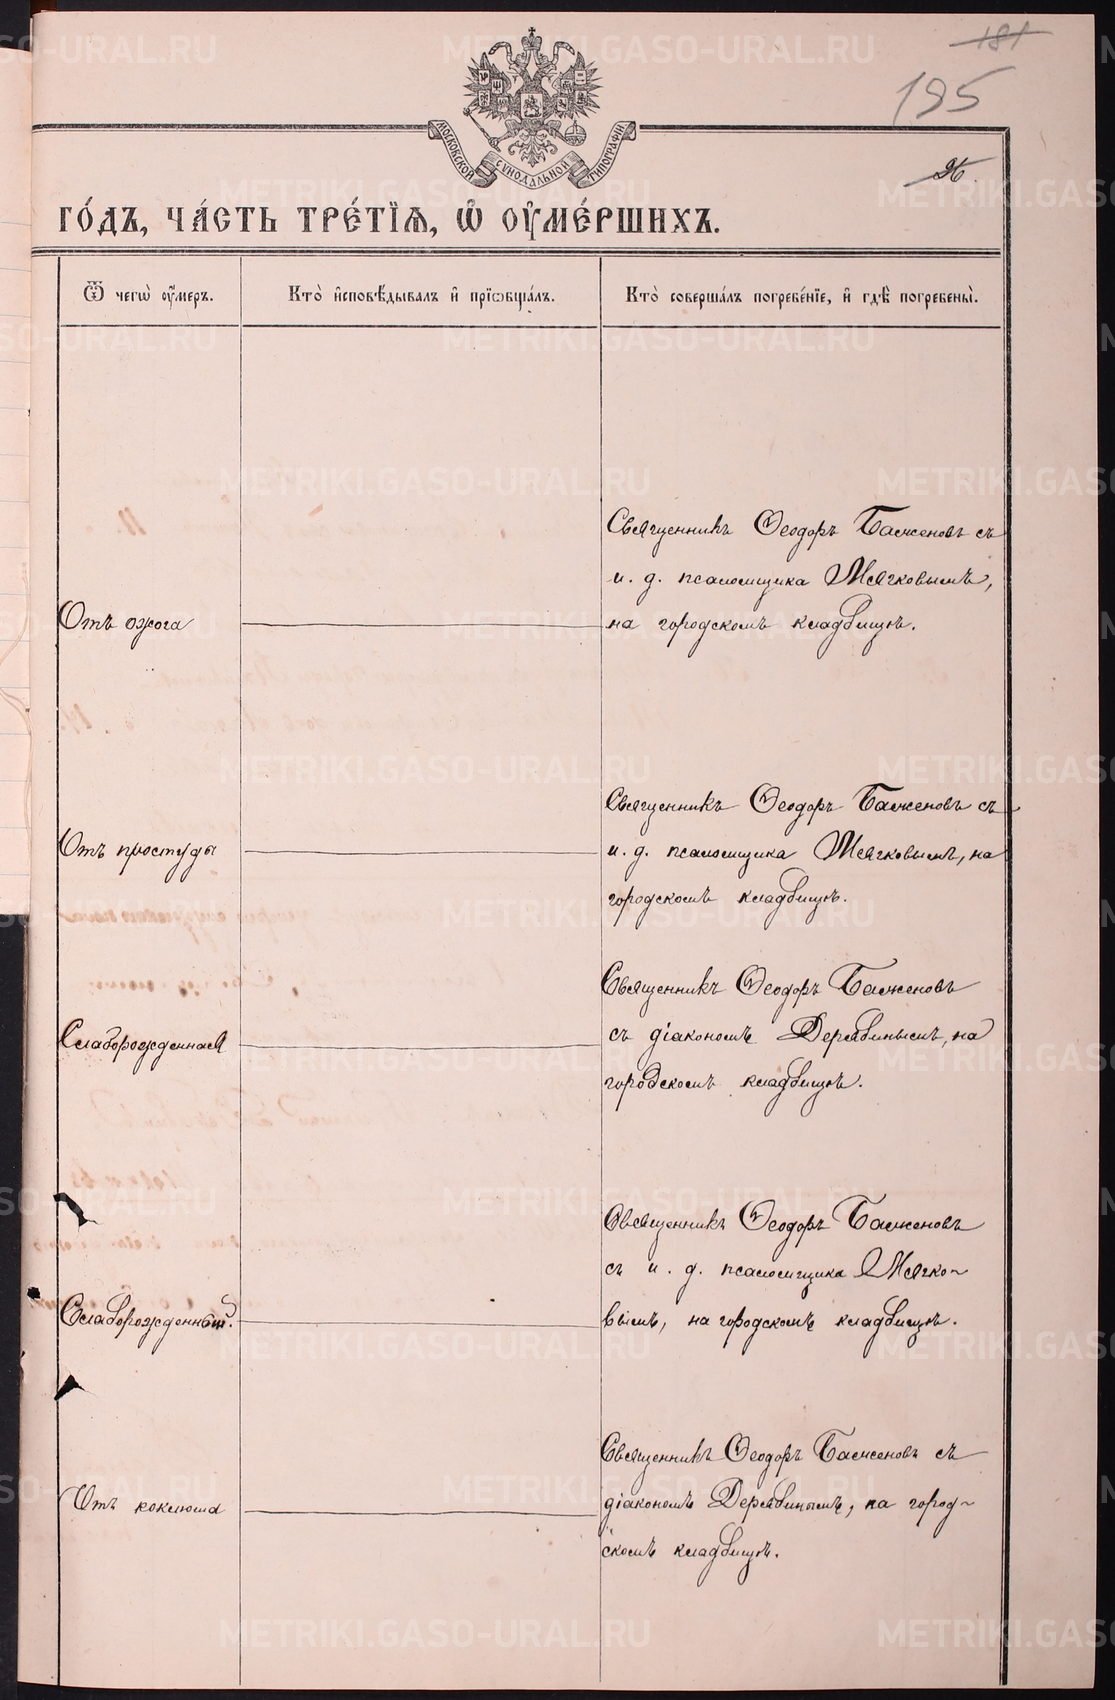 181
195
МОСКОВСКОЙ СѴНОДАЛЬНОЙ ТИПОГРАФІИ
26.
ГО́ДЪ, ЧА́СТЬ ТРЕ́ТІѦ, Ѡ҆ ОУ҆МЕ́РШИХЪ.
Ѿ чегѡ̀ оу҆́меръ.
Кто̀ и҆сповѣ́дывалъ и҆ прїѡбща́лъ.
Кто̀ соверша́лъ погребе́нїе, и҆ гдѣ̀ погребены̀.
Отъ ожога
Священникъ Ѳеодоръ Баженовъ съ
и. д. псаломщика Мягковымъ,
на городскомъ кладбищѣ.
Отъ простуды
Священникъ Ѳеодоръ Баженовъ съ
и. д. псаломщика Мягковымъ, на
городскомъ кладбищѣ.
Слаборожденная
Священникъ Ѳеодоръ Баженовъ
съ діакономъ Дерябинымъ, на
городскомъ кладбищѣ.
Слаборожденный.
Священникъ Ѳеодоръ Баженовъ
съ и. д. псаломщика Мягко-
вымъ, на городскомъ кладбищѣ.
Отъ коклюша
Священникъ Ѳеодоръ Баженовъ съ
діакономъ Дерябинымъ, на город-
скомъ кладбищѣ.
METRIKI.GASO-URAL.RU